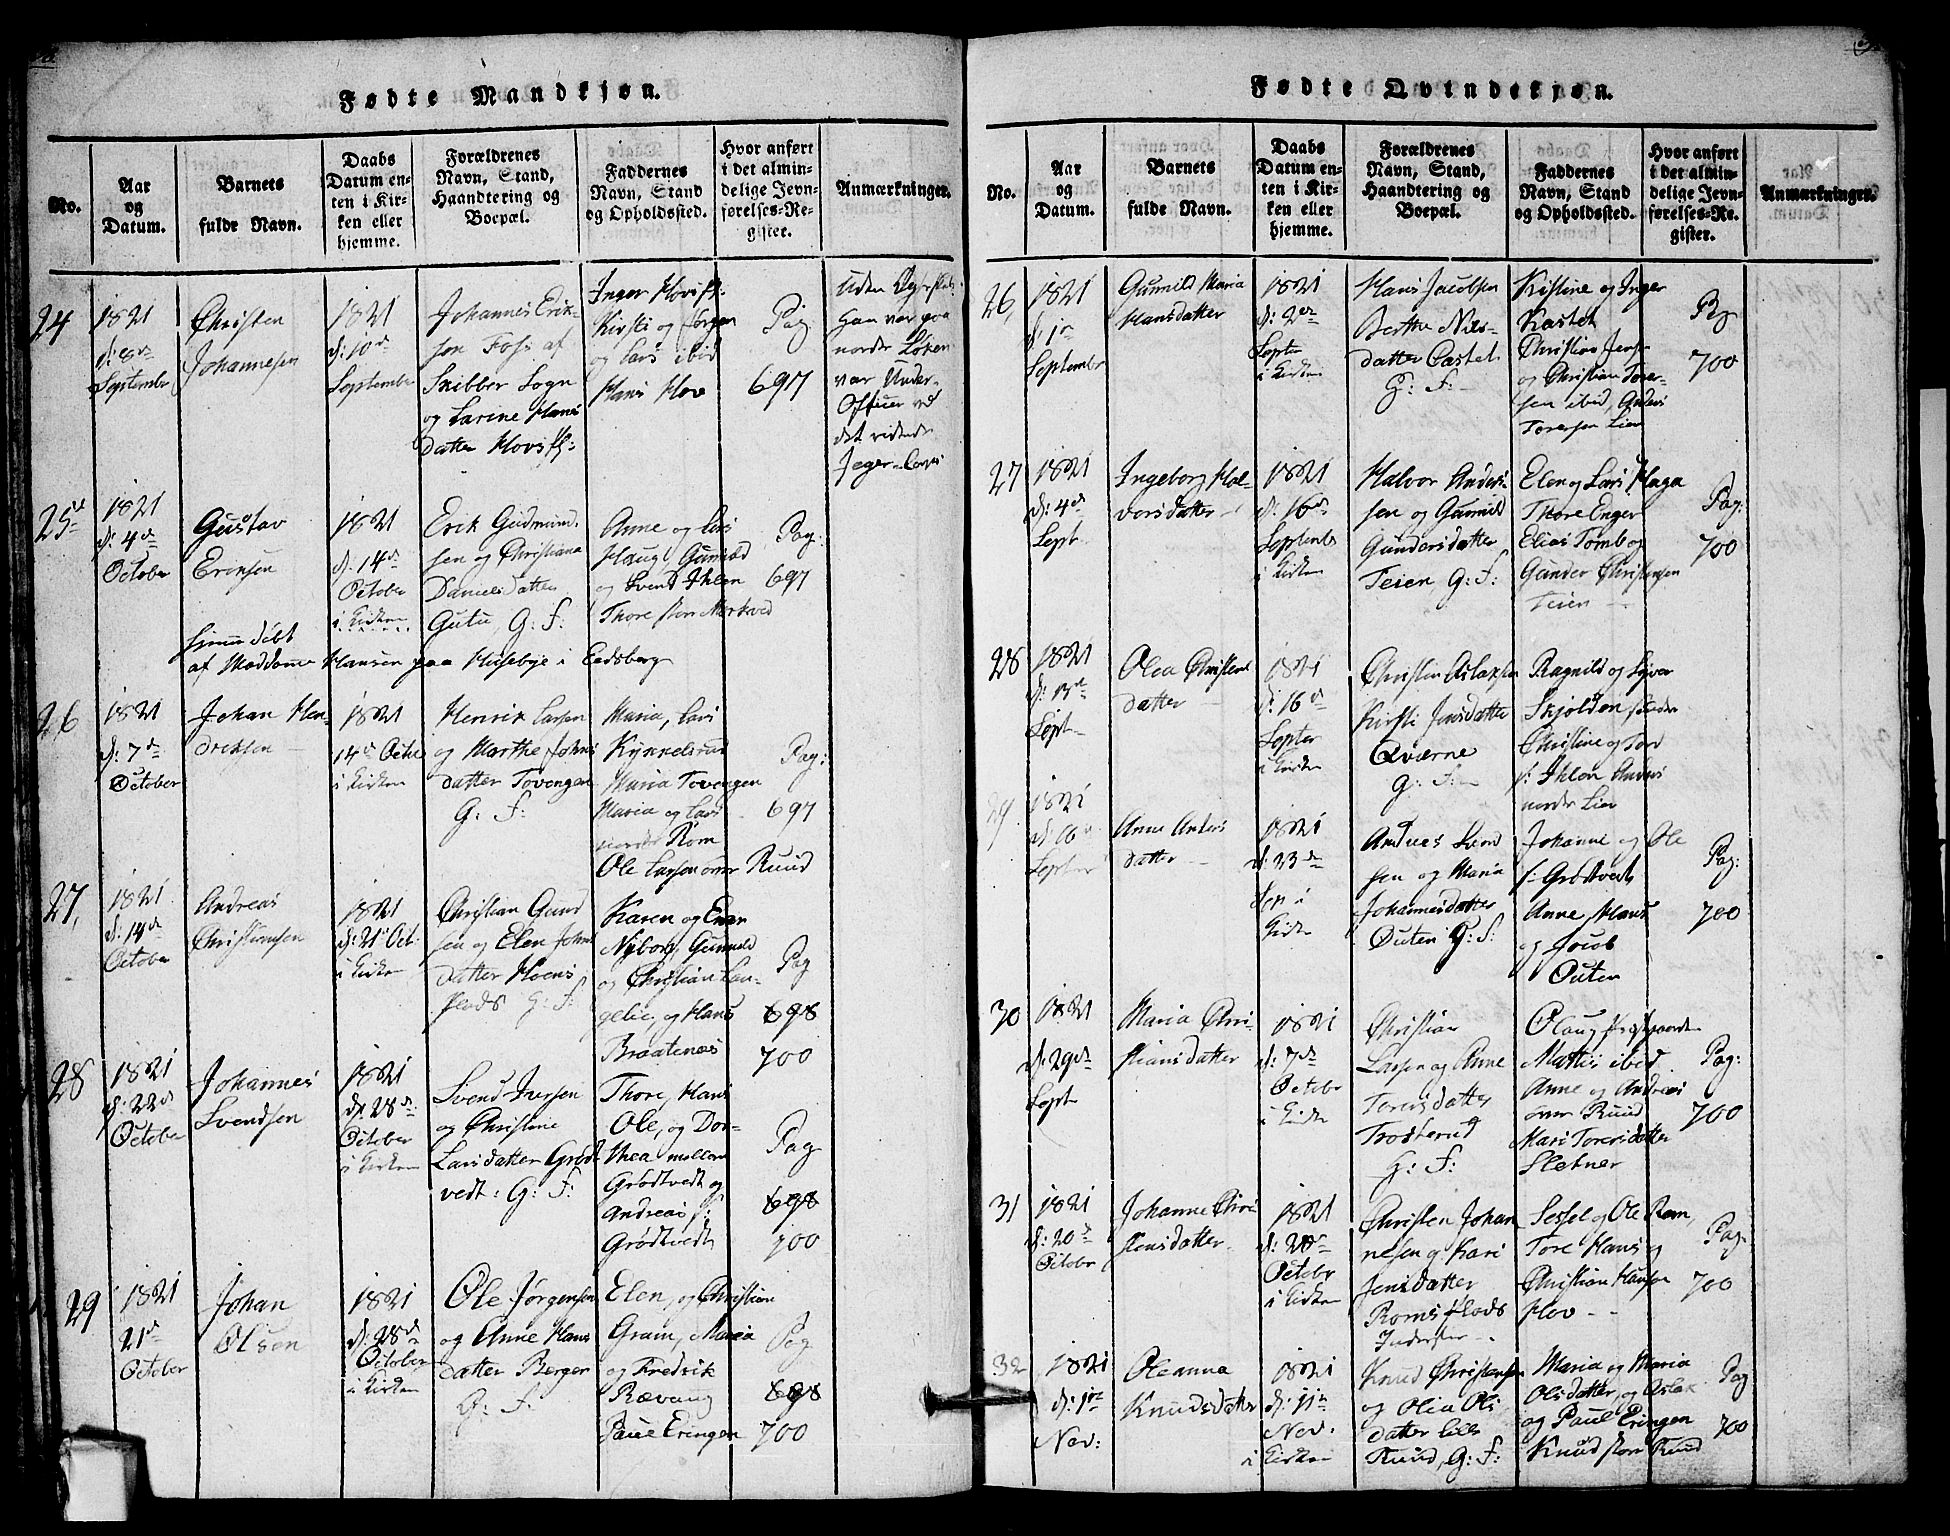 Fødte Mandkjøn.
No.
Aar
og
Datum.
Barnets
fulde Navn.
Daabs
Datum en-
ten i Kir-
ken eller
hjemme.
Forældrenes
Navn, Stand,
Haandtering og
Boepæl.
Faddernes
Navn, Stand
og Opholdssted.
Hvor anført
i det almin-
delige Jevn-
førelses-Re-
gister.
Anmærkninger.
24
1821
September
Christen
Johannesen
1821
d: 10de
September
Johannes Erik-
sen Foss af
Skibber Sogn
og Larine Hans
datter
Kirsti og Jørgen
og Lars ibid
Hans Hove
Pag
697
han var paa
nordr Løken
var Under-
Officer ved
det ridende
Jeger-Corps
25
1821
d: 4de
October
Gustav
Ericsen
1821
d: 14de
October
i Kirken
Erik Gudmund-
sen og Christiana
Danielsdatter
Gutu, G: F:
Anne og Lars
Haug, Gunild
og Svend Ihlen
Thore
Pag:
697
døbt
af Maddame Hansen paa Husebye i Eedsberg
26
1821
d: 7de
October
Johan Hen-
driksen
1821
14de Octbr
i Kirken
Henrik Larsen
og Marthe Johns
datter Tovengen
G: F:
Maria, Lars
Kykkelsrud
Maria Tovengen
Maria og Lars
nordr Røm
Ole Larsen over Ruud
Pag:
697
27,
1821
d: 14de
October
Andreas
Christiansen
1821
d: 21de Oct
i Kirken
Christian Gund
sen og Elen Johns
datter Hoens
plads G: F:
Karen og Enar
Nyborg, Gunnild
og Christian Lan-
gelie, og Hans
Braatenæs
Pag
698
700
28
1821
d: 22de
October
Johannes
Svendsen
1821
d: 28de
October
i Kirken
Svend Iversen
og Christine
Larsdatter Grødt
vedt: G: F:
Thore, Hans
Ole, og Dor-
thea mellem
Grødtvedt og
Andreas s:
Grødtvedt
Pag
698
700
29
1821
21de
October
Johan
Olsen
1821
d: 28de
October
i Kirken
Ole Jørgensen
og Anne Hans
datter Berger
G: F:
Elen, og Christian
Gram, Maria
og Fredrik
Rævaug
Paul Eringen
Pag
698
700
Fødte Qvindekjøn.
No.
Aar
og
Datum.
Barnets
fulde Navn.
Daabs
Datum en-
ten i Kir-
ken eller
hjemme.
Forældrenes
Navn, Stand,
Haandtering og
Boepæl.
Faddernes
Navn, Stand
og Opholdssted.
Hvor anført
i det almin-
delige Jevn-
førelses-Re-
gister.
Anmærkninger.
26,
1821
September
Gunnild Maria
Hansdatter
1821
d: 2den
Septer
i Kirken
Hans Jacobsen
Berthe Nils-
datter Castet
G: F:
Kristine og Inger
Kastet
Christian Jens-
og Christian Tore-
sen ibid, Anders
Toresen Lier
Pg
700
27
1821
d: 4de
Sept
Ingeborg Hal-
vorsdatter
1821
d: 16de
Septembr
i Kirken
Halvor Anders-
sen og Gunnild
Gundersdatter
Teien, G: F:
Elen og Lars Haga
Thore Enger
Elias Tomb og
Gunder Christensen
Teien
Pag:
700
28
1821
d: 13de
Sept
Olea Christens
datter
1821
d: 16de
Septer
i Kirken
Christen Aslaksen
Kirsti Jensdatter
Qværne
G: F:
Ragnild og Syver
Skjolden
Christine og Tord
s: Ihlen Anders
nordre Lier
29
1821
d: 16de
Septer
Anne Anders
datter
1821
d: 23de
Sep i
Kirken
Andreas Svend
sen og Maria
Johannesdatter
Outen G: F:
Johanne og Ole
s: Grødtvedt
Anne, Hans
og Jacob
Outen
Pag:
700
30
1821
d: 29de
Sept
Maria Chri-
stiansdatter
1821
d: 7de
Octobr
i Kirken
Christian
Larsen og Anne
Toresdatter
Trosterud
G: F:
Olaug
Mattis ibid
Anne og Andreas
over Ruud
Mari Toresdatter
Sletner
Pag:
700
31
1821
d: 20de
Octobr
Johanne Chri
stensdatter
1821
d: 28de
Octobr
i Kirken
Christen Johan
nesen og Kari
Jensdatter
Roms plads
Inderster
Sessel og Ole Rom,
Tore Hans og
Christian Hansen
Hov
Pag.
700
32
1821
d: 1ste
Nov:
Oleanna
Knudsdatter
1821
d: 11te
Nov.
i Kirken
Knud Christensen
og Olia Ols
datter lille
Ruud, G: F:
Maria og Maria
Olsdatter, og Aslak
og Paul Eringen
Knud store Ruud
Pag
700